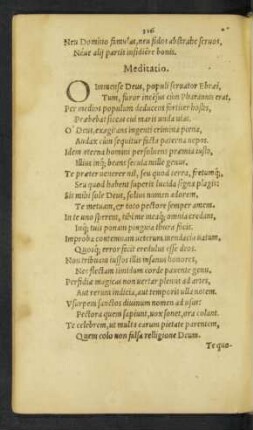 Neu Domino simulet, neu fidos abstrahe seruos,
Néue alij partis insidiêre bonis.
Meditatio.
O Immense Deus, populi seruator Ebræi,
Tum, furor incêsus cùm Pharaonis erat,
Per medios populum deducens fortiter hostes,
Præbebat siccas cui maris unda uias.
O' Deus, exagitans ingenti crimina pœna,
Audax cùm sequitur facta paterna nepos.
Idem æterna homini persoluens præmia iusto,
Illius inq́; beans secula mille genus.
Te præter uenerer nil, seu quod terra, fretumq́;,
Seu quod habent superis lucida signa plagis:
Sit mihi sole Deus, solius numen adorem,
Te metuam, & toto pectore semper amem.
In te uno sperent, tibi me meaq́; omnia credam,
Inq́; tuis ponam pinguia thura focis.
Improba contemnam ueterum mendacia uatum,
Quosq́; error fecit credulus esse deos.
Non tribuam iussos illis insanus honores,
Nec flectam timidum corde pauente genu.
Perfidiæ magicas non uertar plenus ad artes,
Aut rerum indicia, aut temporis ulla notem.
Vsurpem sanctos diuinum nomen ad usus:
Pectora quem sapiunt, uox sonet, ora colant.
Te celebrem, ut multa earum pietate parentem,
Quem colo non falsa relligione Deum.
Te quo-